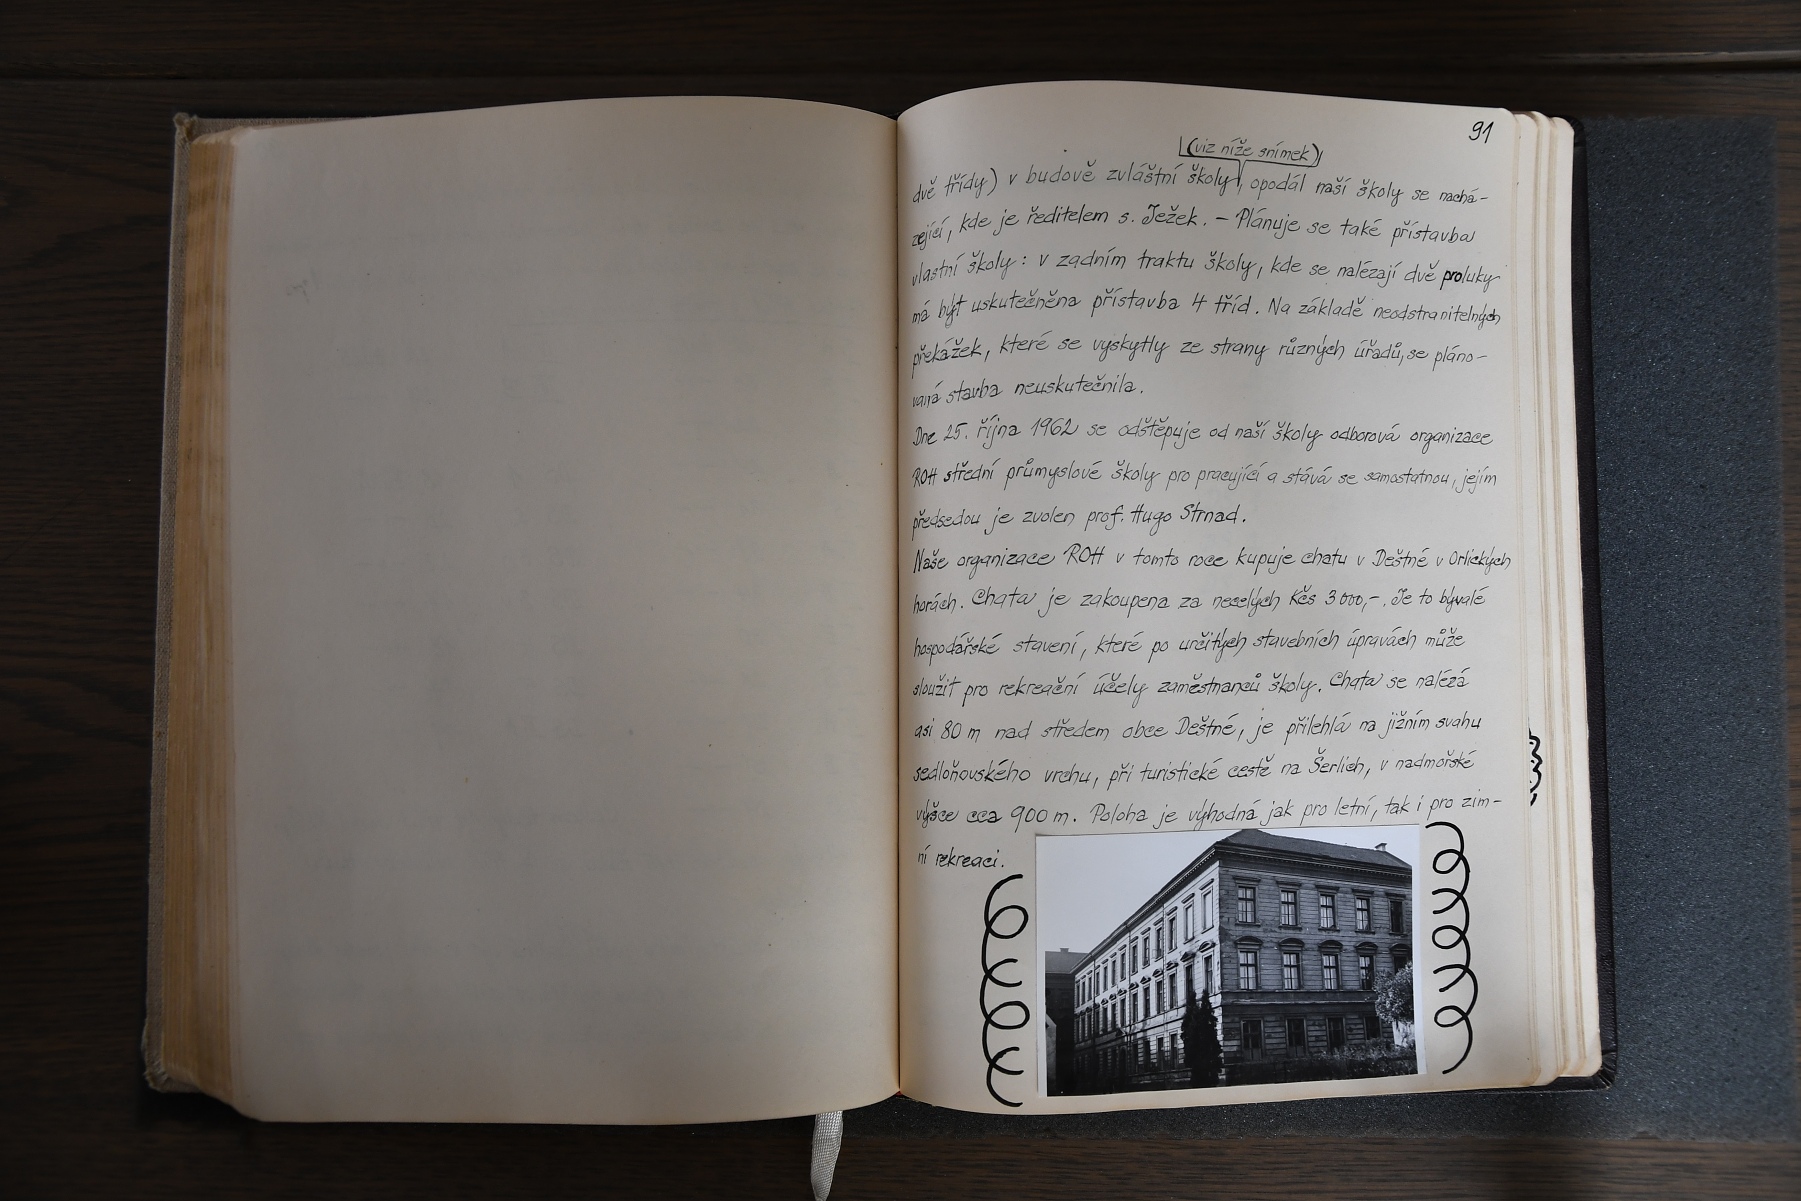 91
(viz níže snímek)
dvě třídy) v budově zvláštní školy, opodál naší školy se nachá-
zející, kde je ředitelem s. Ježek. – Plánuje se také přístavba
vlastní školy: v zadním traktu školy, kde se nalézají dvě proluky
má být uskutečněna přístavba 4 tříd. Na základě neodstranitelných
překážek, které se vyskytly ze strany různých úřadů, se pláno-
vaná stavba neuskutečnila.
Dne 25. října 1962 se odštěpuje od naší školy odborová organizace
ROH střední průmyslové školy pro pracující a stává se samostatnou, jejím
předsedou je zvolen prof. Hugo Strnad.
Naše organizace ROH v tomto roce kupuje chatu v Deštné v Orlických
horách. Chata je zakoupena za necelých Kčs 3000,-. Je to bývalé
hospodářské stavení, které po určitých stavebních úpravách může
sloužit pro rekreační účely zaměstnanců školy. Chata se nalézá
asi 80 m nad středem obce Deštné, je přilehlá na jižním svahu
sedloňovského vrchu, při turistické cestě na Šerlich, v nadmořské
výšce cca 900 m. Poloha je výhodná jak pro letní, tak i pro zim-
ní rekreaci.